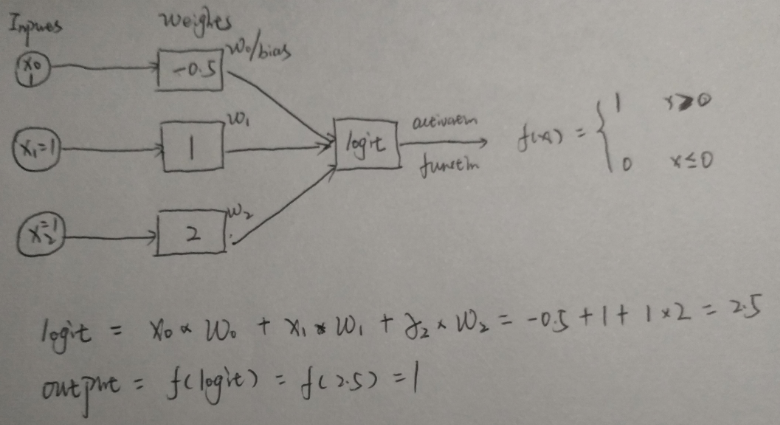 Inputs Weights
x0 1 -0.5 w0/bias
x1=1 1 w1 logit activation function f(x) = { 1 x>0
0 x≤0
x2=1 2 w2
logit = x0 × w0 + x1 × w1 + x2 × w2 = -0.5 + 1 + 1 × 2 = 2.5
output = f(logit) = f(2.5) = 1